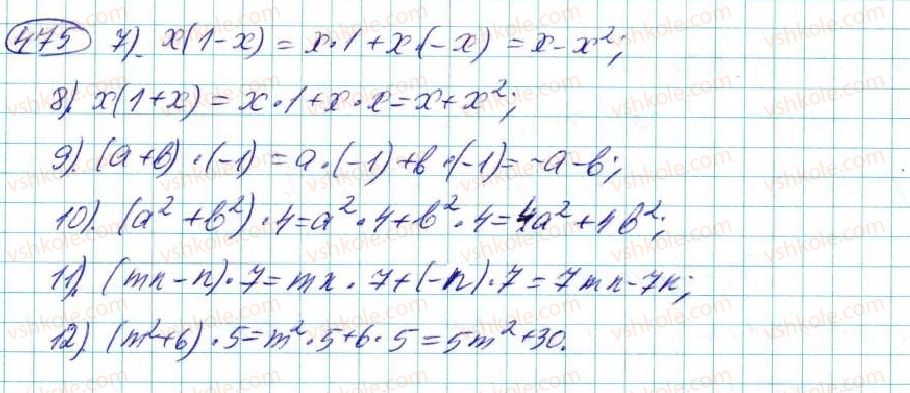 475 7) x(1-x) = x·1+x·(-x) = x-x²;
8) x(1+x) = x·1+x·x = x+x²;
9) (a+b)·(-1) = a·(-1)+b·(-1) = -a-b;
10) (a²+b²)·4 = a²·4+b²·4 = 4a²+4b²;
11) (mn-n)·7 = mn·7+(-n)·7 = 7mn-7n;
12) (m²+6)·5 = m²·5+6·5 = 5m²+30.
vshkole.com